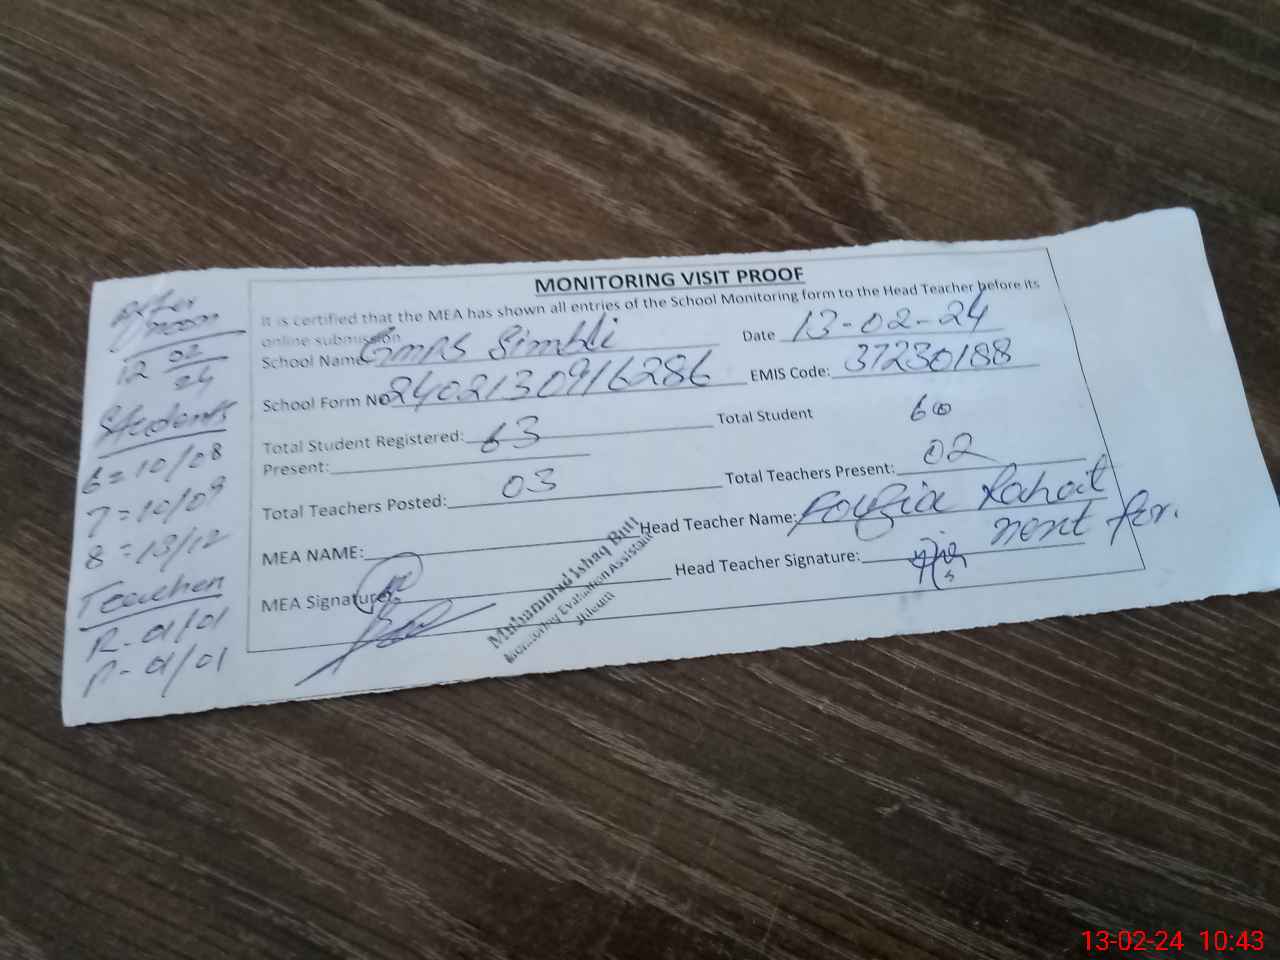 MONITORING VISIT PROOF
It is certified that the MEA has shown all entries of the School Monitoring form to the Head Teacher before its
online submission
School Name Gmps Simbli Date 13-02-24
School Form No 2402130916286 EMIS Code: 37230188
Total Student Registered: 63 Total Student 60
Present:
Total Teachers Posted: 03 Total Teachers Present: 02
MEA NAME: Head Teacher Name: Fouzia Rahat
MEA Signature: Head Teacher Signature:
Muhammad Ishaq Butt
Monitoring Evaluation Assistant
Jhelum
After
noon
12 02
24
Students
6 = 10/08
7 = 10/09
8 = 13/12
Teacher
R - 01/01
P - 01/01
13-02-24 10:43